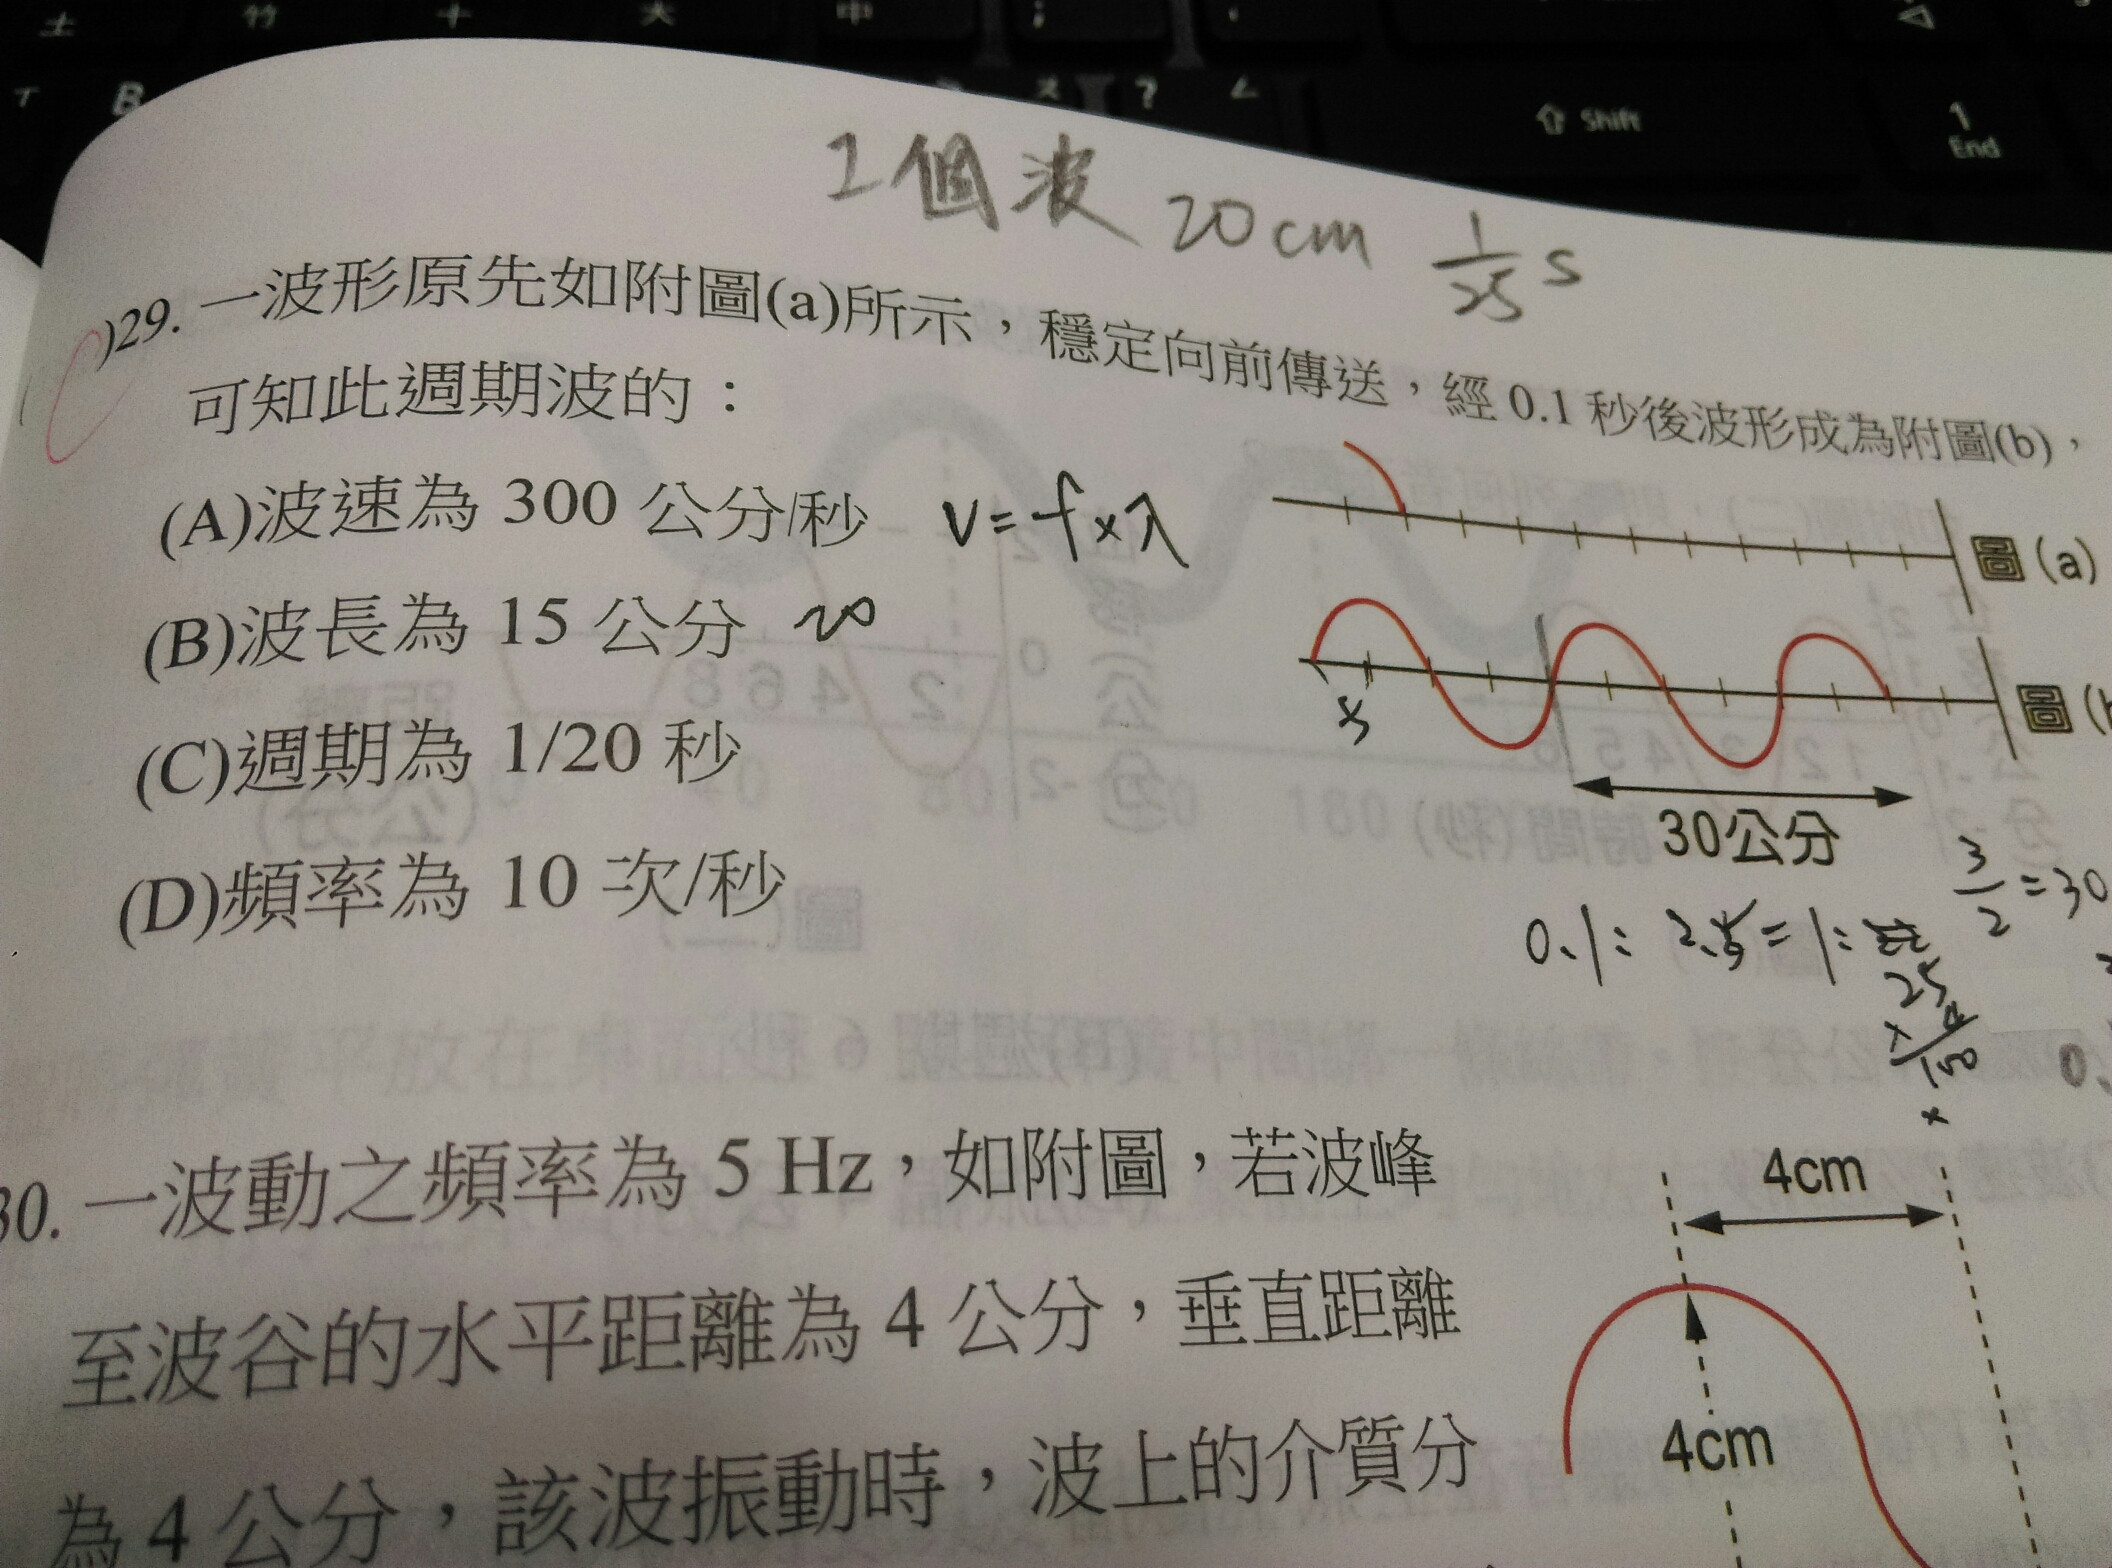 土 竹 十 大 中 ;
B ? ㄥ
⇧ Shift 1
End
1個波 20cm 1/25 s
)29. 一波形原先如附圖(a)所示，穩定向前傳送，經 0.1 秒後波形成為附圖(b)，
可知此週期波的：
(A)波速為 300 公分/秒 v=f×λ
(B)波長為 15 公分 20
(C)週期為 1/20 秒
(D)頻率為 10 次/秒
圖(a)
圖(
5
30公分
3/2=30
0.1:2.5=1:
25
×4
100
30. 一波動之頻率為 5 Hz，如附圖，若波峰
至波谷的水平距離為 4 公分，垂直距離
為 4 公分，該波振動時，波上的介質分
4cm
4cm